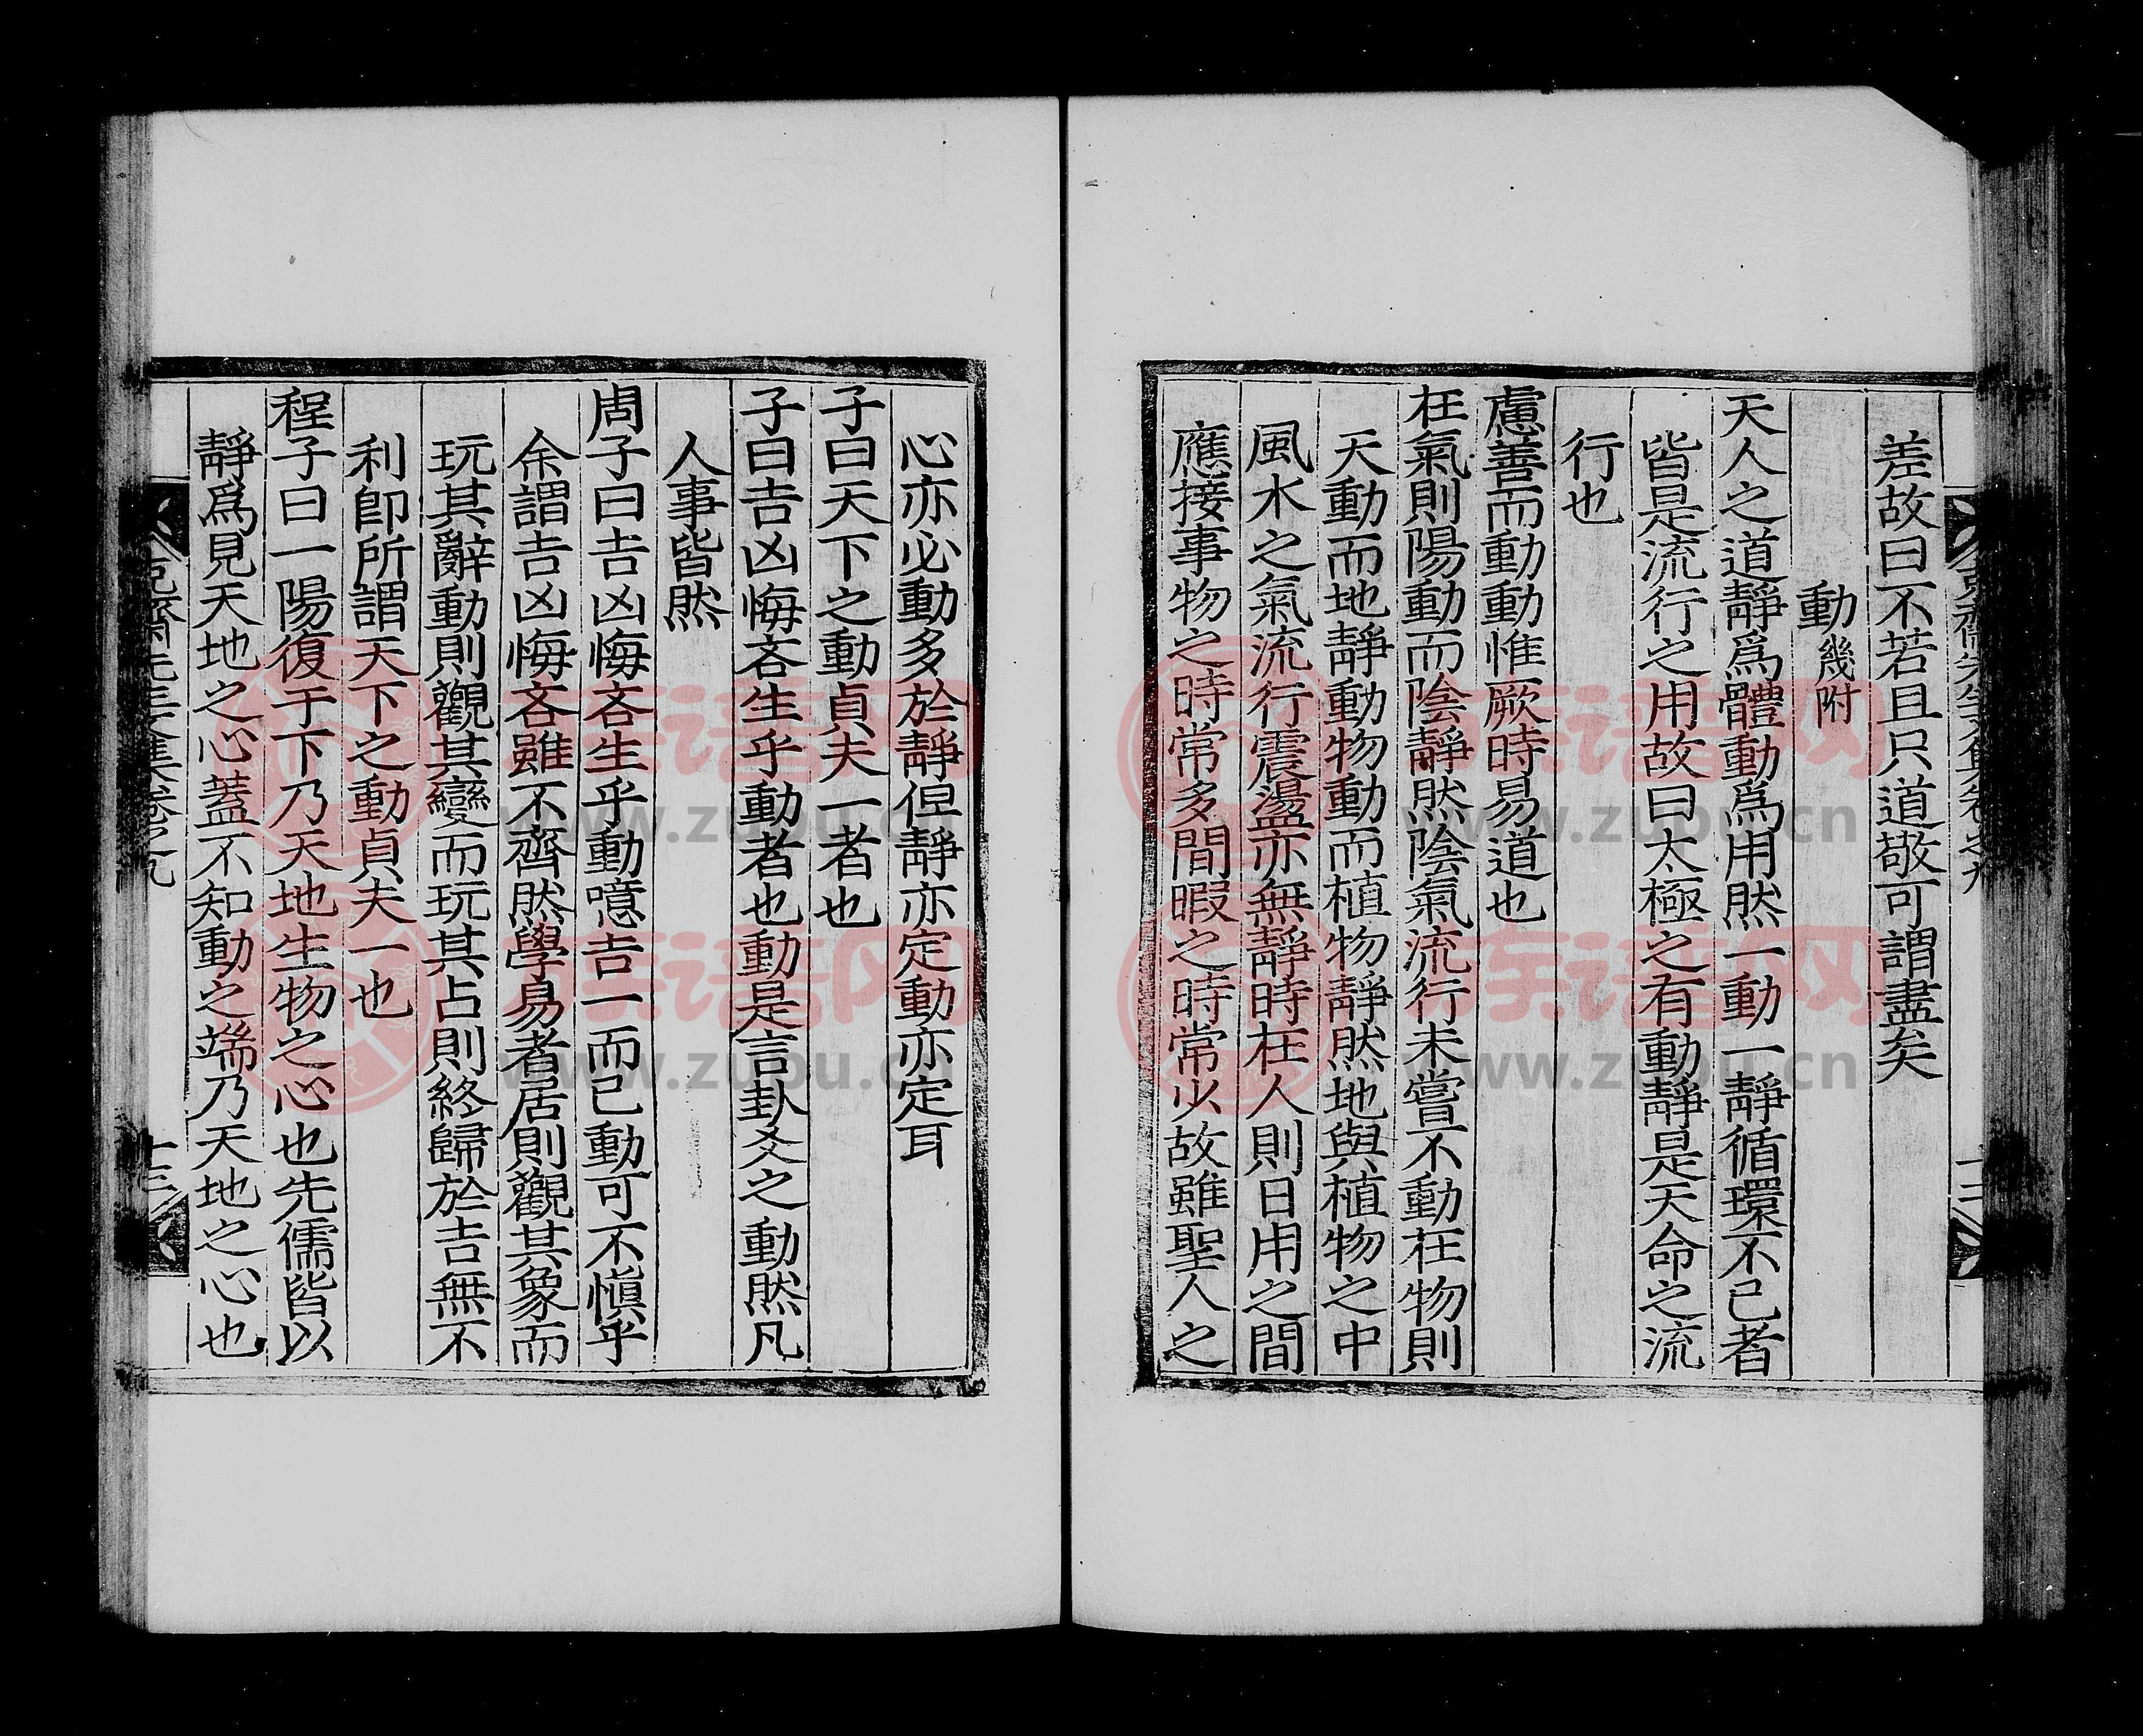 差故曰不若且只道敬可謂盡矣
動幾附
天人之道靜爲體動爲用然一動一靜循環不已者
皆是流行之用故曰太極之有動靜是天命之流
行也
慮善而動動惟厥時易道也
在氣則陽動而陰靜然陰氣流行未嘗不動在物則
天動而地靜動物動而植物靜然地與植物之中
風水之氣流行震盪亦無靜時在人則日用之間
應接事物之時常多間暇之時常少故雖聖人之
心亦必動多於靜但靜亦定動亦定耳
子曰天下之動貞夫一者也
子曰吉凶悔吝生乎動者也動是言卦爻之動然凡
人事皆然
周子曰吉凶悔吝生乎動噫吉一而已動可不愼乎
余謂吉凶悔吝雖不齊然學易者居則觀其象而
玩其辭動則觀其變而玩其占則終歸於吉無不
利卽所謂天下之動貞夫一也
程子曰一陽復于下乃天地生物之心也先儒皆以
靜爲見天地之心蓋不知動之端乃天地之心也
克齋先生文集卷之九
十三
族谱网
www.zupu.cn
族谱网
www.zupu.cn
族谱网
www.zupu.cn
族谱网
www.zupu.cn